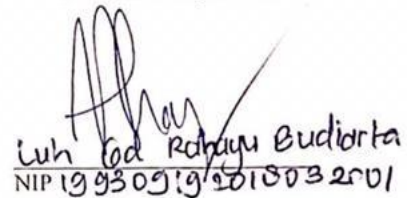 Luh Gd Rahayu Budiarta
NIP 19930919 201903 2 001